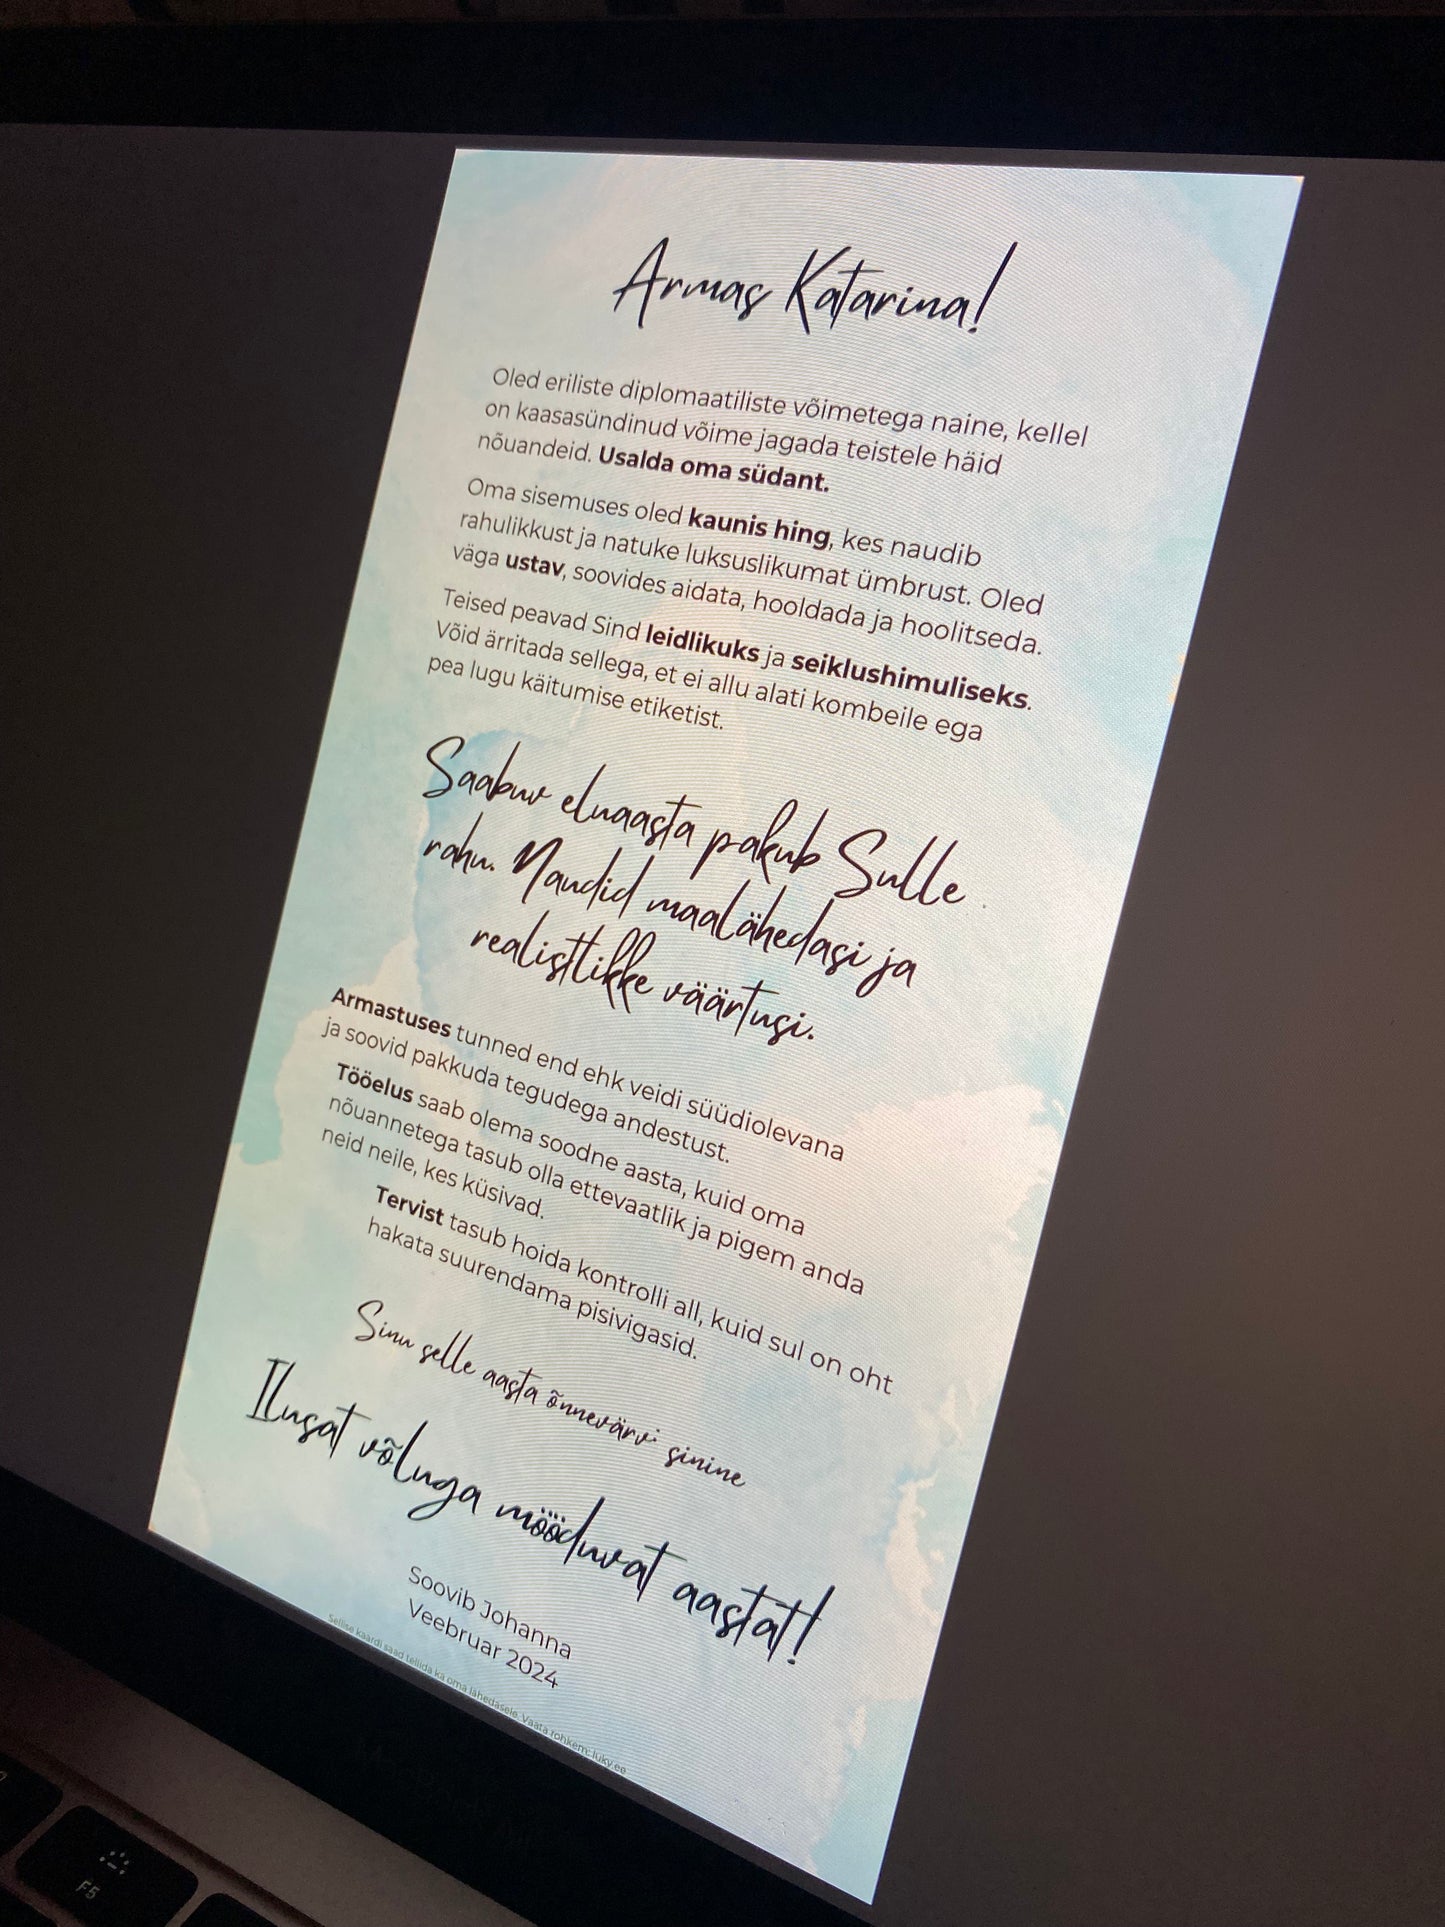 Armas Katarina!
Oled eriliste diplomaatiliste võimetega naine, kellel
on kaasasündinud võime jagada teistele häid
nõuandeid. Usalda oma südant.
Oma sisemuses oled kaunis hing, kes naudib
rahulikkust ja natuke luksuslikumat ümbrust. Oled
väga ustav, soovides aidata, hooldada ja hoolitseda.
Teised peavad Sind leidlikuks ja seiklushimuliseks.
Võid ärritada sellega, et ei allu alati kombeile ega
pea lugu käitumise etiketist.
Saabuv eluaasta pakub Sulle
rahu. Naudid maalähedasi ja
realistlikke väärtusi.
Armastuses tunned end ehk veidi süüdiolevana
ja soovid pakkuda tegudega andestust.
Tööelus saab olema soodne aasta, kuid oma
nõuannetega tasub olla ettevaatlik ja pigem anda
neid neile, kes küsivad.
Tervist tasub hoida kontrolli all, kuid sul on oht
hakata suurendama pisivigasid.
Sinu selle aasta õnnevärvi sinine
Ilusat võluga mööduvat aastat!
Soovib Johanna
Veebruar 2024
Sellise kaardi saad tellida ka oma lähedasele. Vaata rohkem: luky.ee
F5